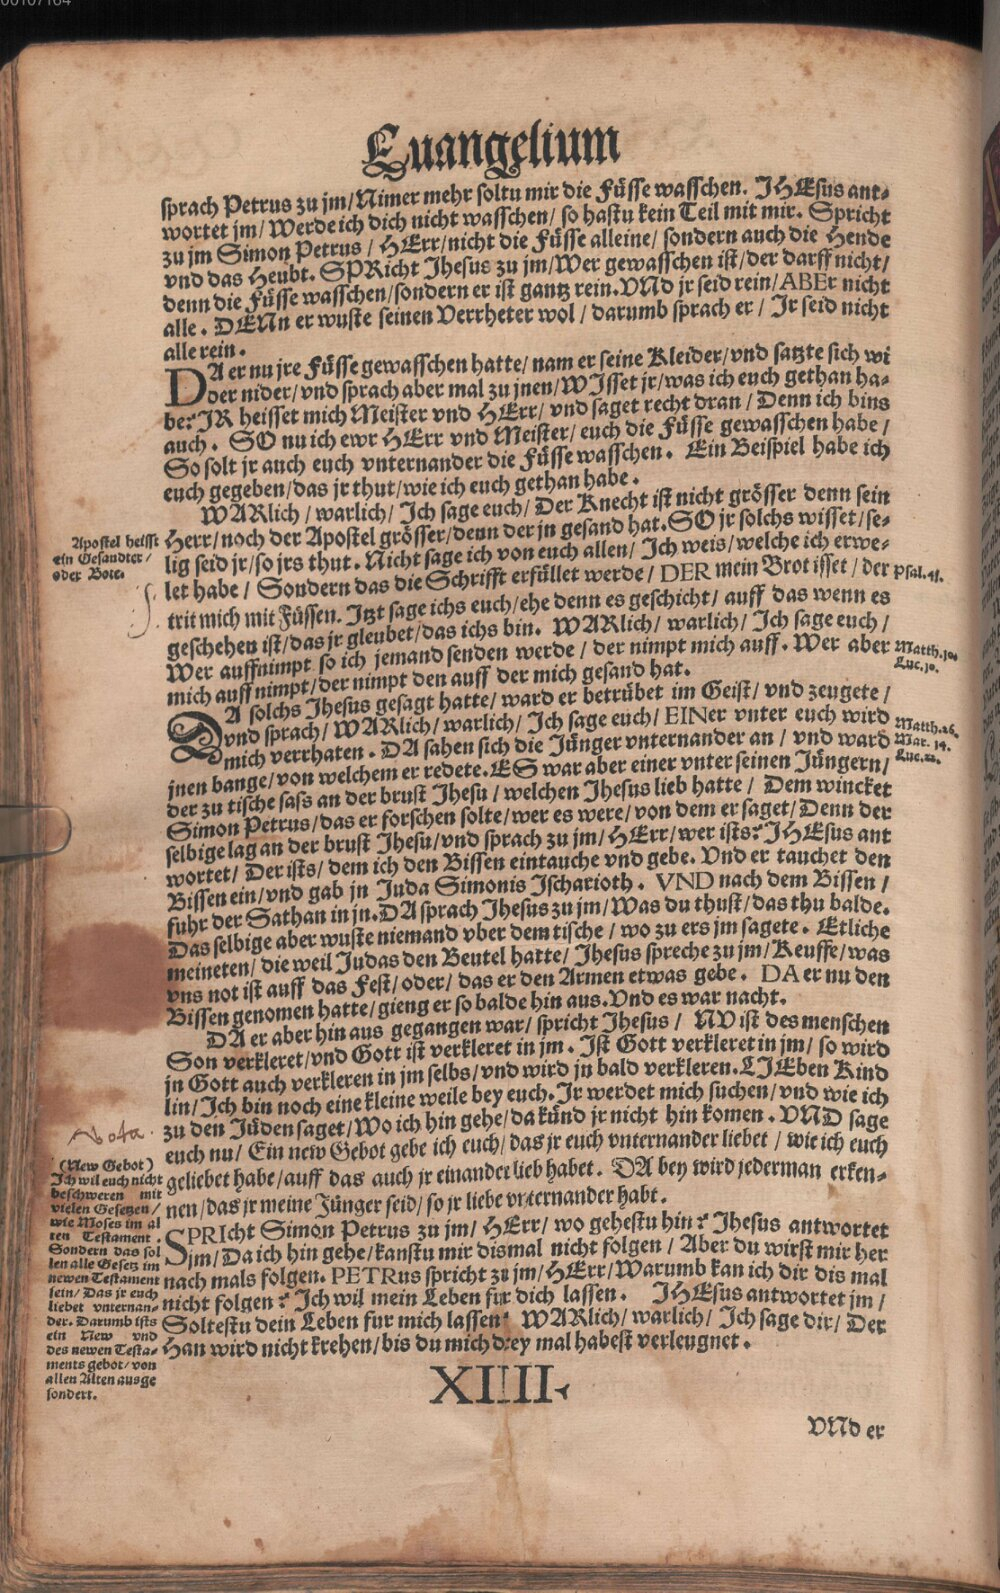 00107164
Euangelium
sprach Petrus zu jm/Nimer mehr soltu mir die Füsse wasschen. JHEsus ant-
wortet jm/Werde ich dich nicht wasschen/ so hastu kein Teil mit mir. Spricht
zu jm Simon Petrus / HErr/nicht die Füsse alleine/ sondern auch die Hende
vnd das Heubt. SPRicht Jhesus zu jm/Wer gewasschen ist/der darff nicht/
denn die Füsse wasschen/sondern er ist gantz rein.VNd jr seid rein/ABEr nicht
alle. DENn er wuste seinen Verrheter wol/ darumb sprach er/ Jr seid nicht
alle rein.
DA er nu jre Füsse gewasschen hatte/ nam er seine Kleider/vnd satzte sich wi
der nider/vnd sprach aber mal zu jnen/WIsset jr/was ich euch gethan ha-
be? JR heisset mich Meister vnd HErr/ vnd saget recht dran/ Denn ich bins
auch. SO nu ich ewr HErr vnd Meister/ euch die Füsse gewasschen habe/
So solt jr auch euch vnternander die Füsse wasschen. Ein Beispiel habe ich
euch gegeben/das jr thut/wie ich euch gethan habe.
WARlich/warlich/ Ich sage euch/ Der Knecht ist nicht grösser denn sein
Herr/noch der Apostel grösser/denn der jn gesand hat. SO jr solchs wisset/se-
lig seid jr/so jrs thut. Nicht sage ich von euch allen/ Ich weis/welche ich erwe-
let habe/ Sondern das die Schrifft erfüllet werde/ DER mein Brot isset/der
trit mich mit Füssen. Jtzt sage ichs euch/ehe denn es geschicht/ auff das wenn es
geschehen ist/das jr gleubet/das ichs bin. WARlich/ warlich/ Ich sage euch/
Wer auffnimpt so ich jemand senden werde/ der nimpt mich auff. Wer aber
mich auff nimpt/der nimpt den auff der mich gesand hat.
Apostel heisst
ein Gesandter/
oder Bote.
Psal.41.
Matth.10.
Luc.10.
DA solchs Jhesus gesagt hatte/ ward er betrübet im Geist/ vnd zeugete/
vnd sprach/ WARlich/ warlich/ Ich sage euch/ EINer vnter euch wird
mich verrhaten. DA sahen sich die Jünger vnternander an/ vnd ward
jnen bange/von welchem er redete. ES war aber einer vnter seinen Jüngern/
der zu tische sass an der brust Jhesu/ welchen Jhesus lieb hatte/ Dem wincket
Simon Petrus/das er forschen solte/wer es were/von dem er saget/Denn der
selbige lag an der brust Jhesu/vnd sprach zu jm/ HErr/wer ists? JHEsus ant
wortet/ Der ists/ dem ich den Bissen eintauche vnd gebe. Vnd er tauchet den
Bissen ein/vnd gab jn Juda Simonis Jscharioth. VND nach dem Bissen/
fuhr der Sathan in jn. DA sprach Jhesus zu jm/Was du thust/das thu balde.
Das selbige aber wuste niemand vber dem tische/ wo zu ers jm sagete. Etliche
meineten/ die weil Judas den Beutel hatte/ Jhesus spreche zu jm/ Keuffe/was
vns not ist auff das Fest/oder/ das er den Armen etwas gebe. DA er nu den
Bissen genomen hatte/gieng er so balde hin aus.Vnd es war nacht.
Matth.26.
Mar. 14.
Luc.22.
DA er aber hin aus gegangen war/ spricht Jhesus/ NV ist des menschen
Son verkleret/vnd Gott ist verkleret in jm. Ist Gott verkleret in jm/ so wird
jn Gott auch verkleren in jm selbs/vnd wird jn bald verkleren.LIEben Kind
lin/Ich bin noch eine kleine weile bey euch. Jr werdet mich suchen/vnd wie ich
zu den Jüden saget/Wo ich hin gehe/da künd jr nicht hin komen. VND sage
euch nu/ Ein new Gebot gebe ich euch/das jr euch vnternander liebet/ wie ich euch
geliebet habe/auff das auch jr einander lieb habet. DA bey wird jederman erken-
nen/das jr meine Jünger seid/so jr liebe vnternander habt.
Nota.
(New Gebot)
Ich wil euch nicht
beschweren mit
vielen Gesetzen/
wie Moses im al
ten Testament.
Sondern das sol
len alle Gesetz im
newen Testament
sein/ Das jr euch
liebet vnternan-
der. Darumb ists
ein New vnd
des newen Testa-
ments gebot/von
allen Alten ausge
sondert.
SPRIcht Simon Petrus zu jm/ HErr/ wo gehestu hin? Jhesus antwortet
jm/Da ich hin gehe/kanstu mir dismal nicht folgen/ Aber du wirst mir her
nach mals folgen. PETRus spricht zu jm/HErr/Warumb kan ich dir dis mal
nicht folgen? Ich wil mein Leben für dich lassen. JHEsus antwortet jm/
Soltestu dein Leben fur mich lassen? WARlich/ warlich/ Ich sage dir/ Der
Han wird nicht krehen/bis du mich drey mal habest verleugnet.
XIIII.
VNd er